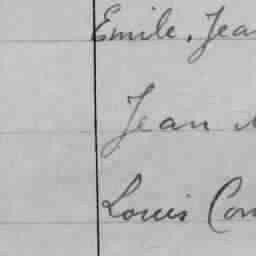 Emile, Jean
Jean
Louis